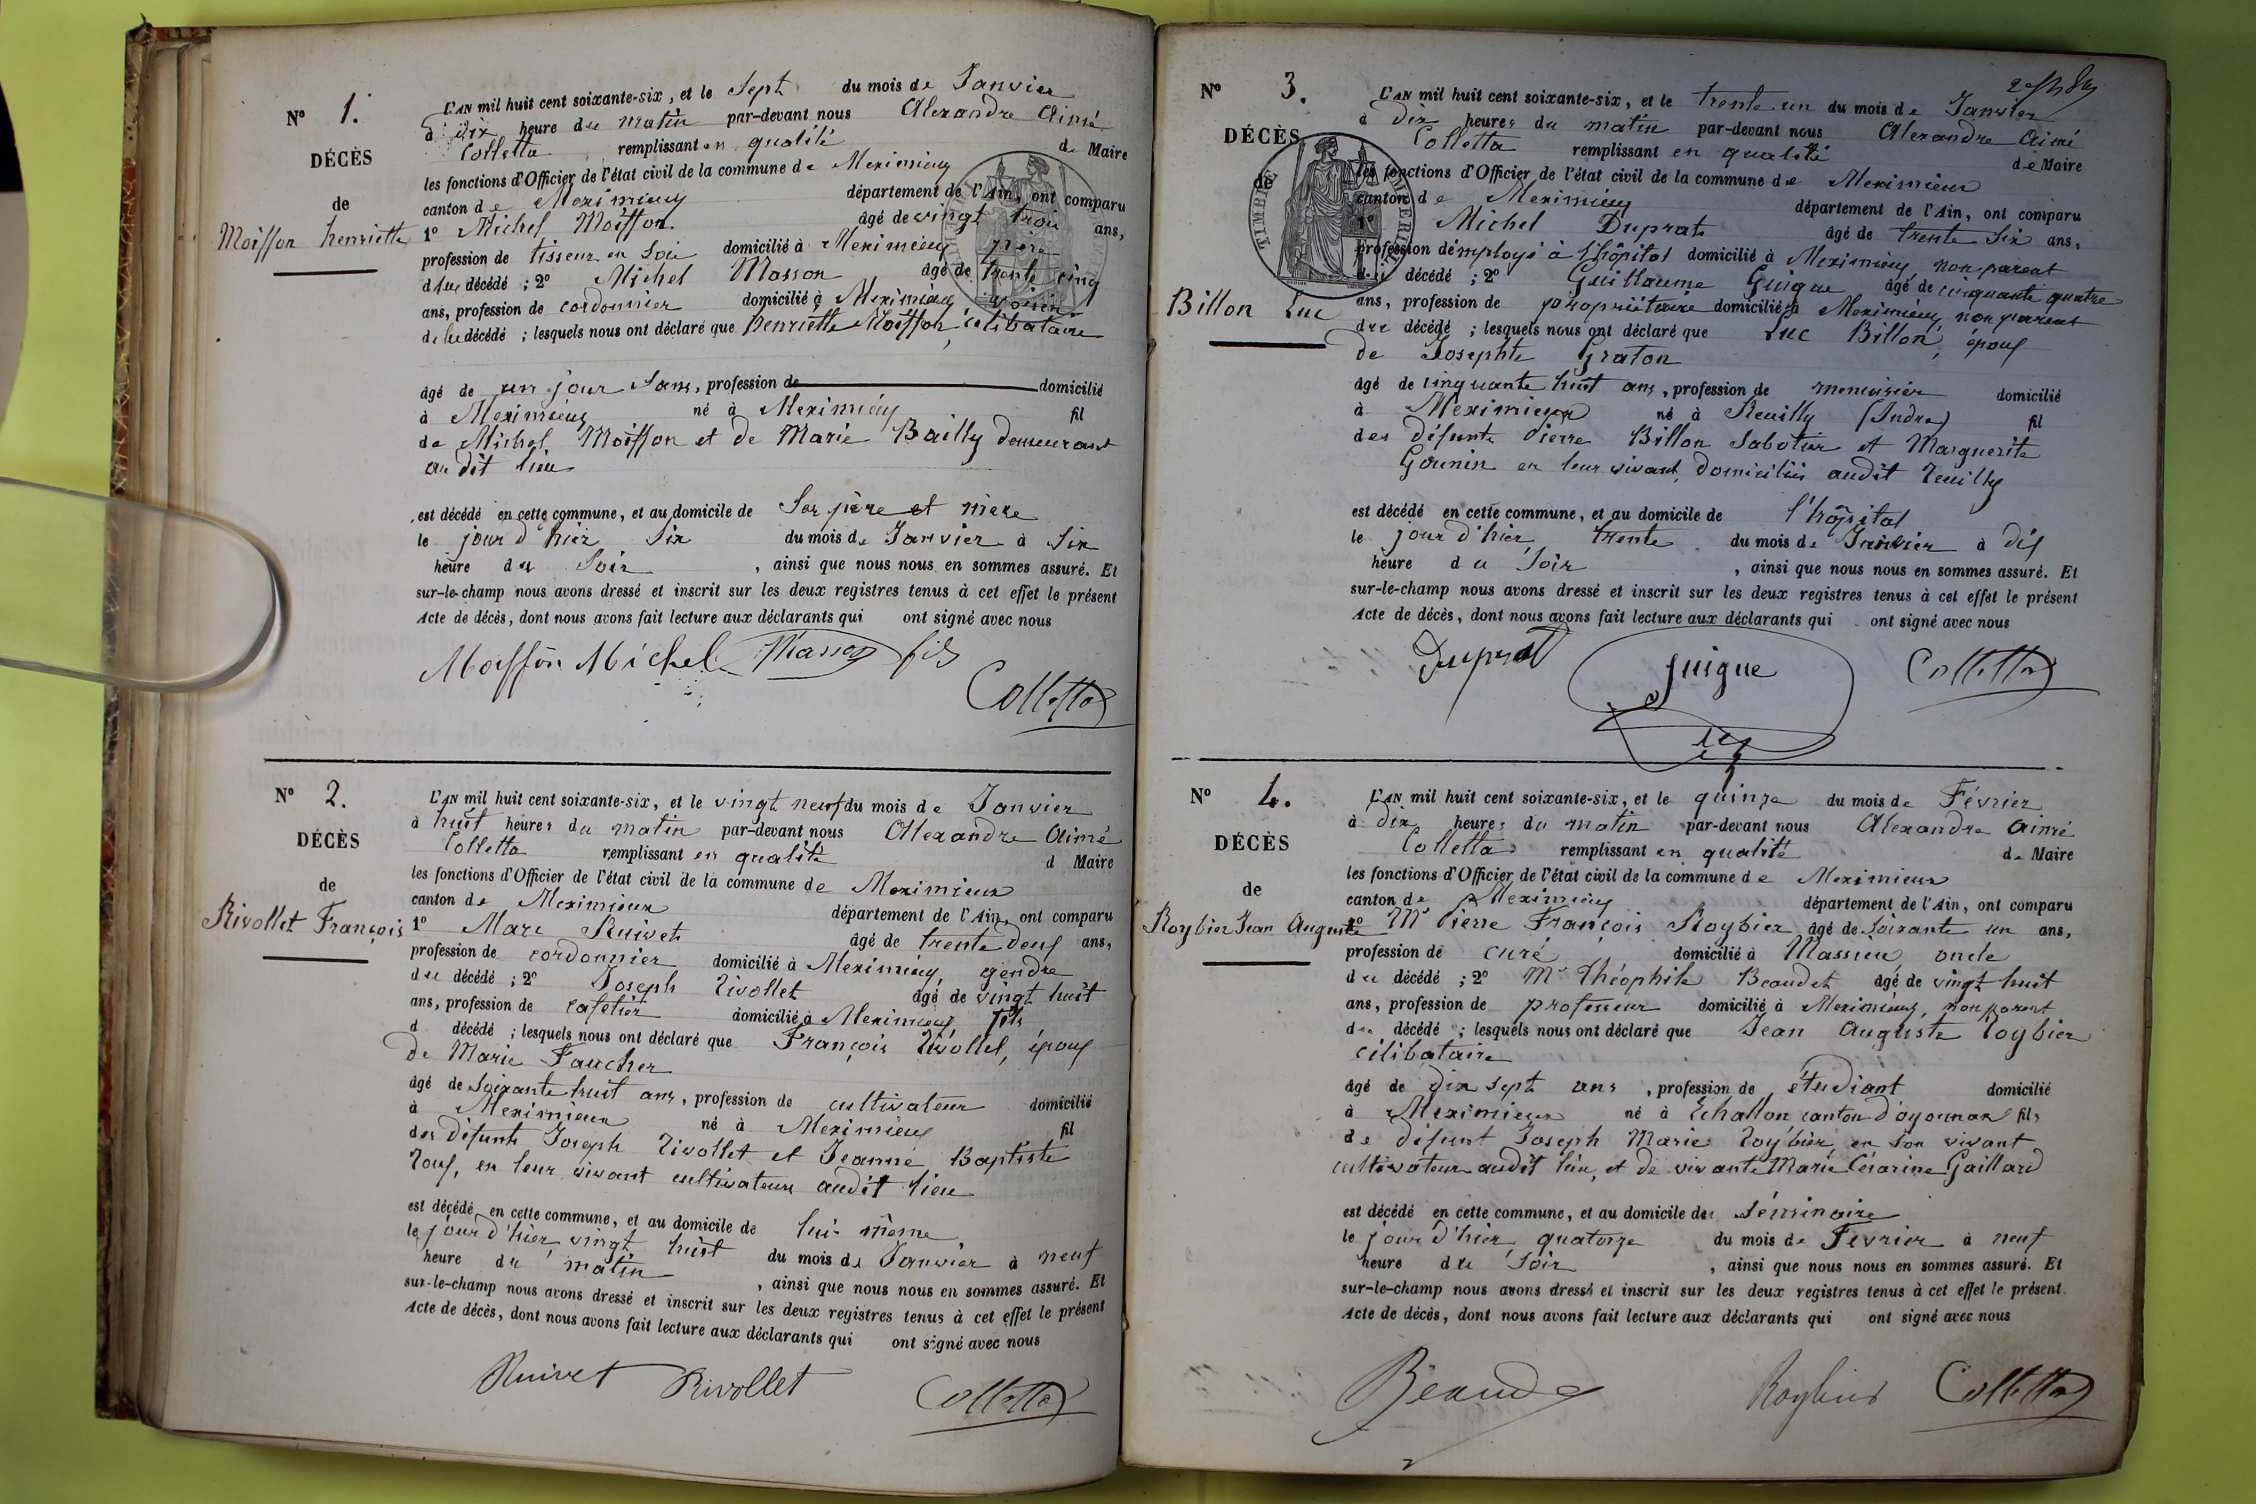 N° 1.
DÉCÈS
de
Moisson henriette
L'AN mil huit cent soixante-six, et le Sept du mois de Janvier
à dix heure du matin par-devant nous Alexandre Aimé
Colletta remplissant en qualité de Maire
les fonctions d'Officier de l'état civil de la commune de Meximieux
canton de Meximieux département de l'Ain, ont comparu
1° Michel Moisson âgé de vingt trois ans,
profession de tisseur en soie domicilié à Meximieux père
de la décédé ; 2° Michel Masson âgé de trente cinq
ans, profession de cordonnier domicilié à Meximieux voisin
de la décédé ; lesquels nous ont déclaré que henriette Moisson, célibataire
âgé de un jour Sans, profession de domicilié
à Meximieux né à Meximieux fil
de Michel Moisson et de Marie Bailly demeurant
au dit lieu
est décédé en cette commune, et au domicile de Ses père et mère
le jour d'hier Six du mois de Janvier à Six
heure du Soir , ainsi que nous nous en sommes assuré. Et
sur-le-champ nous avons dressé et inscrit sur les deux registres tenus à cet effet le présent
Acte de décès, dont nous avons fait lecture aux déclarants qui ont signé avec nous
Moisson Michel Masson fils
Colletta
N° 2.
DÉCÈS
de
Rivollet François
L'AN mil huit cent soixante-six, et le vingt neuf du mois de Janvier
à huit heures du matin par-devant nous Alexandre Aimé
Colletta remplissant en qualité d Maire
les fonctions d'Officier de l'état civil de la commune de Meximieux
canton de Meximieux département de l'Ain, ont comparu
1° Marc Ruivet âgé de trente deux ans,
profession de cordonnier domicilié à Meximieux, gendre
du décédé ; 2° Joseph Rivollet âgé de vingt huit
ans, profession de cafetier domicilié à Meximieux fils
d décédé ; lesquels nous ont déclaré que François Rivollet, époux
de Marie Faucher
âgé de Soixante huit ans, profession de cultivateur domicilié
à Meximieux né à Meximieux fil
des défunts Joseph Rivollet et Jeanne Baptiste
Roux, en leur vivant cultivateurs audit lieu
est décédé en cette commune, et au domicile de lui-même
le jour d'hier, vingt huit du mois de Janvier à neuf
heure du matin , ainsi que nous nous en sommes assuré. Et
sur-le-champ nous avons dressé et inscrit sur les deux registres tenus à cet effet le présent
Acte de décès, dont nous avons fait lecture aux déclarants qui ont signé avec nous
Ruivet Rivollet Colletta
N° 3.
DÉCÈS
de
Billon Luc
TIMBRE
L'AN mil huit cent soixante-six, et le trente un du mois de Janvier
à dix heures du matin par-devant nous Alexandre Aimé
Colletta remplissant en qualité de Maire
les fonctions d'Officier de l'état civil de la commune de Meximieux
canton de Meximieux département de l'Ain, ont comparu
1° Michel Duprat âgé de trente Six ans,
profession d'employé à l'hôpital domicilié à Meximieux, non parent
du décédé ; 2° Guillaume Guigue âgé de cinquante quatre
ans, profession de propriétaire domicilié à Meximieux, non parent
du décédé ; lesquels nous ont déclaré que Luc Billon, époux
de Josephte Graton
âgé de cinquante huit ans, profession de menuisier domicilié
à Meximieux né à Reuilly (Indre) fil
des défunts Pierre Billon Sabotier et Marguerite
Gounin en leur vivant, domiciliés audit Reuilly
est décédé en cette commune, et au domicile de l'hôpital
le jour d'hier, trente du mois de Janvier à dix
heure du Soir , ainsi que nous nous en sommes assuré. Et
sur-le-champ nous avons dressé et inscrit sur les deux registres tenus à cet effet le présent
Acte de décès, dont nous avons fait lecture aux déclarants qui ont signé avec nous
Duprat Guigue Colletta
N° 4.
DÉCÈS
de
Roybier Jean Auguste
L'AN mil huit cent soixante-six, et le quinze du mois de Février
à dix heures du matin par-devant nous Alexandre Aimé
Colletta remplissant en qualité de Maire
les fonctions d'Officier de l'état civil de la commune de Meximieux
canton de Meximieux département de l'Ain, ont comparu
1° Mr Pierre François Roybier âgé de Soixante un ans,
profession de curé domicilié à Massieu oncle
du décédé ; 2° Mr Théophile Beaudet âgé de vingt huit
ans, profession de professeur domicilié à Meximieux, non parent
du décédé ; lesquels nous ont déclaré que Jean Auguste Roybier
célibataire
âgé de dix sept ans, profession de étudiant domicilié
à Meximieux né à Echallon canton d'oyonnax fils
de défunt Joseph Marie Roybier en Son vivant
cultivateur audit lieu, et de vivante Marie Césarine Gaillard
est décédé en cette commune, et au domicile du Séminaire
le jour d'hier, quatorze du mois de Février à neuf
heure du Soir , ainsi que nous nous en sommes assuré. Et
sur-le-champ nous avons dressé et inscrit sur les deux registres tenus à cet effet le présent
Acte de décès, dont nous avons fait lecture aux déclarants qui ont signé avec nous
Beaudet Roybier Colletta